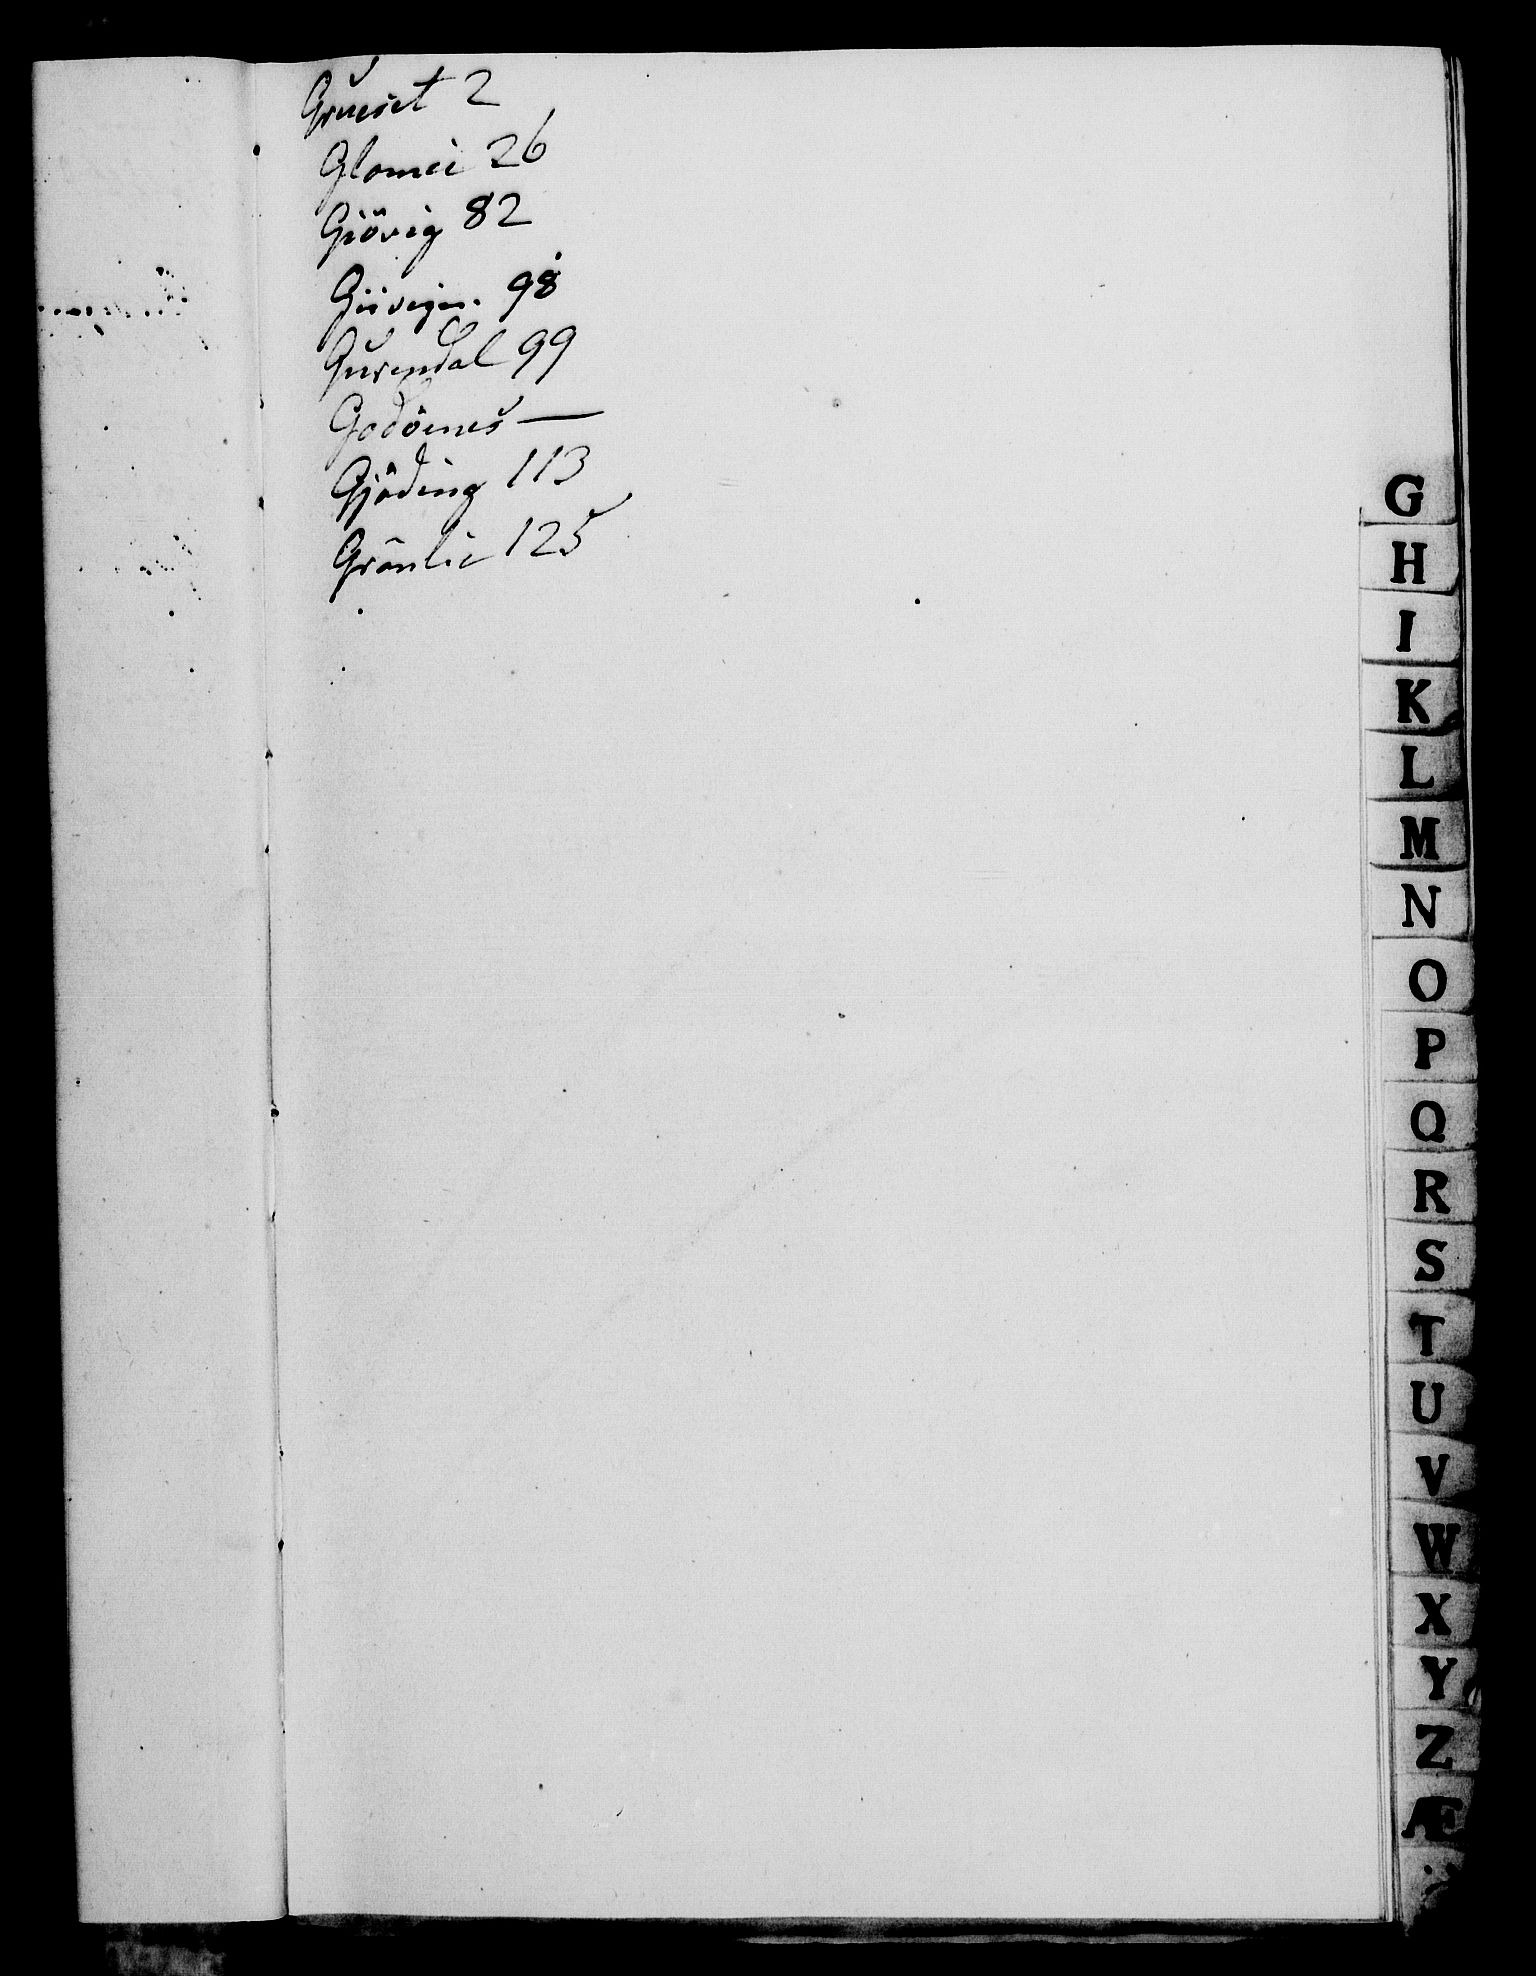 Grueset 2
Glomei 26
Giövig 82
98
Gurendal 99
Godöenes —
Gjöding 113
Grönlie 125
G
H
I
K
L
M
N
O
P
Q
R
S
T
U
V
W
X
Y
Z
Æ